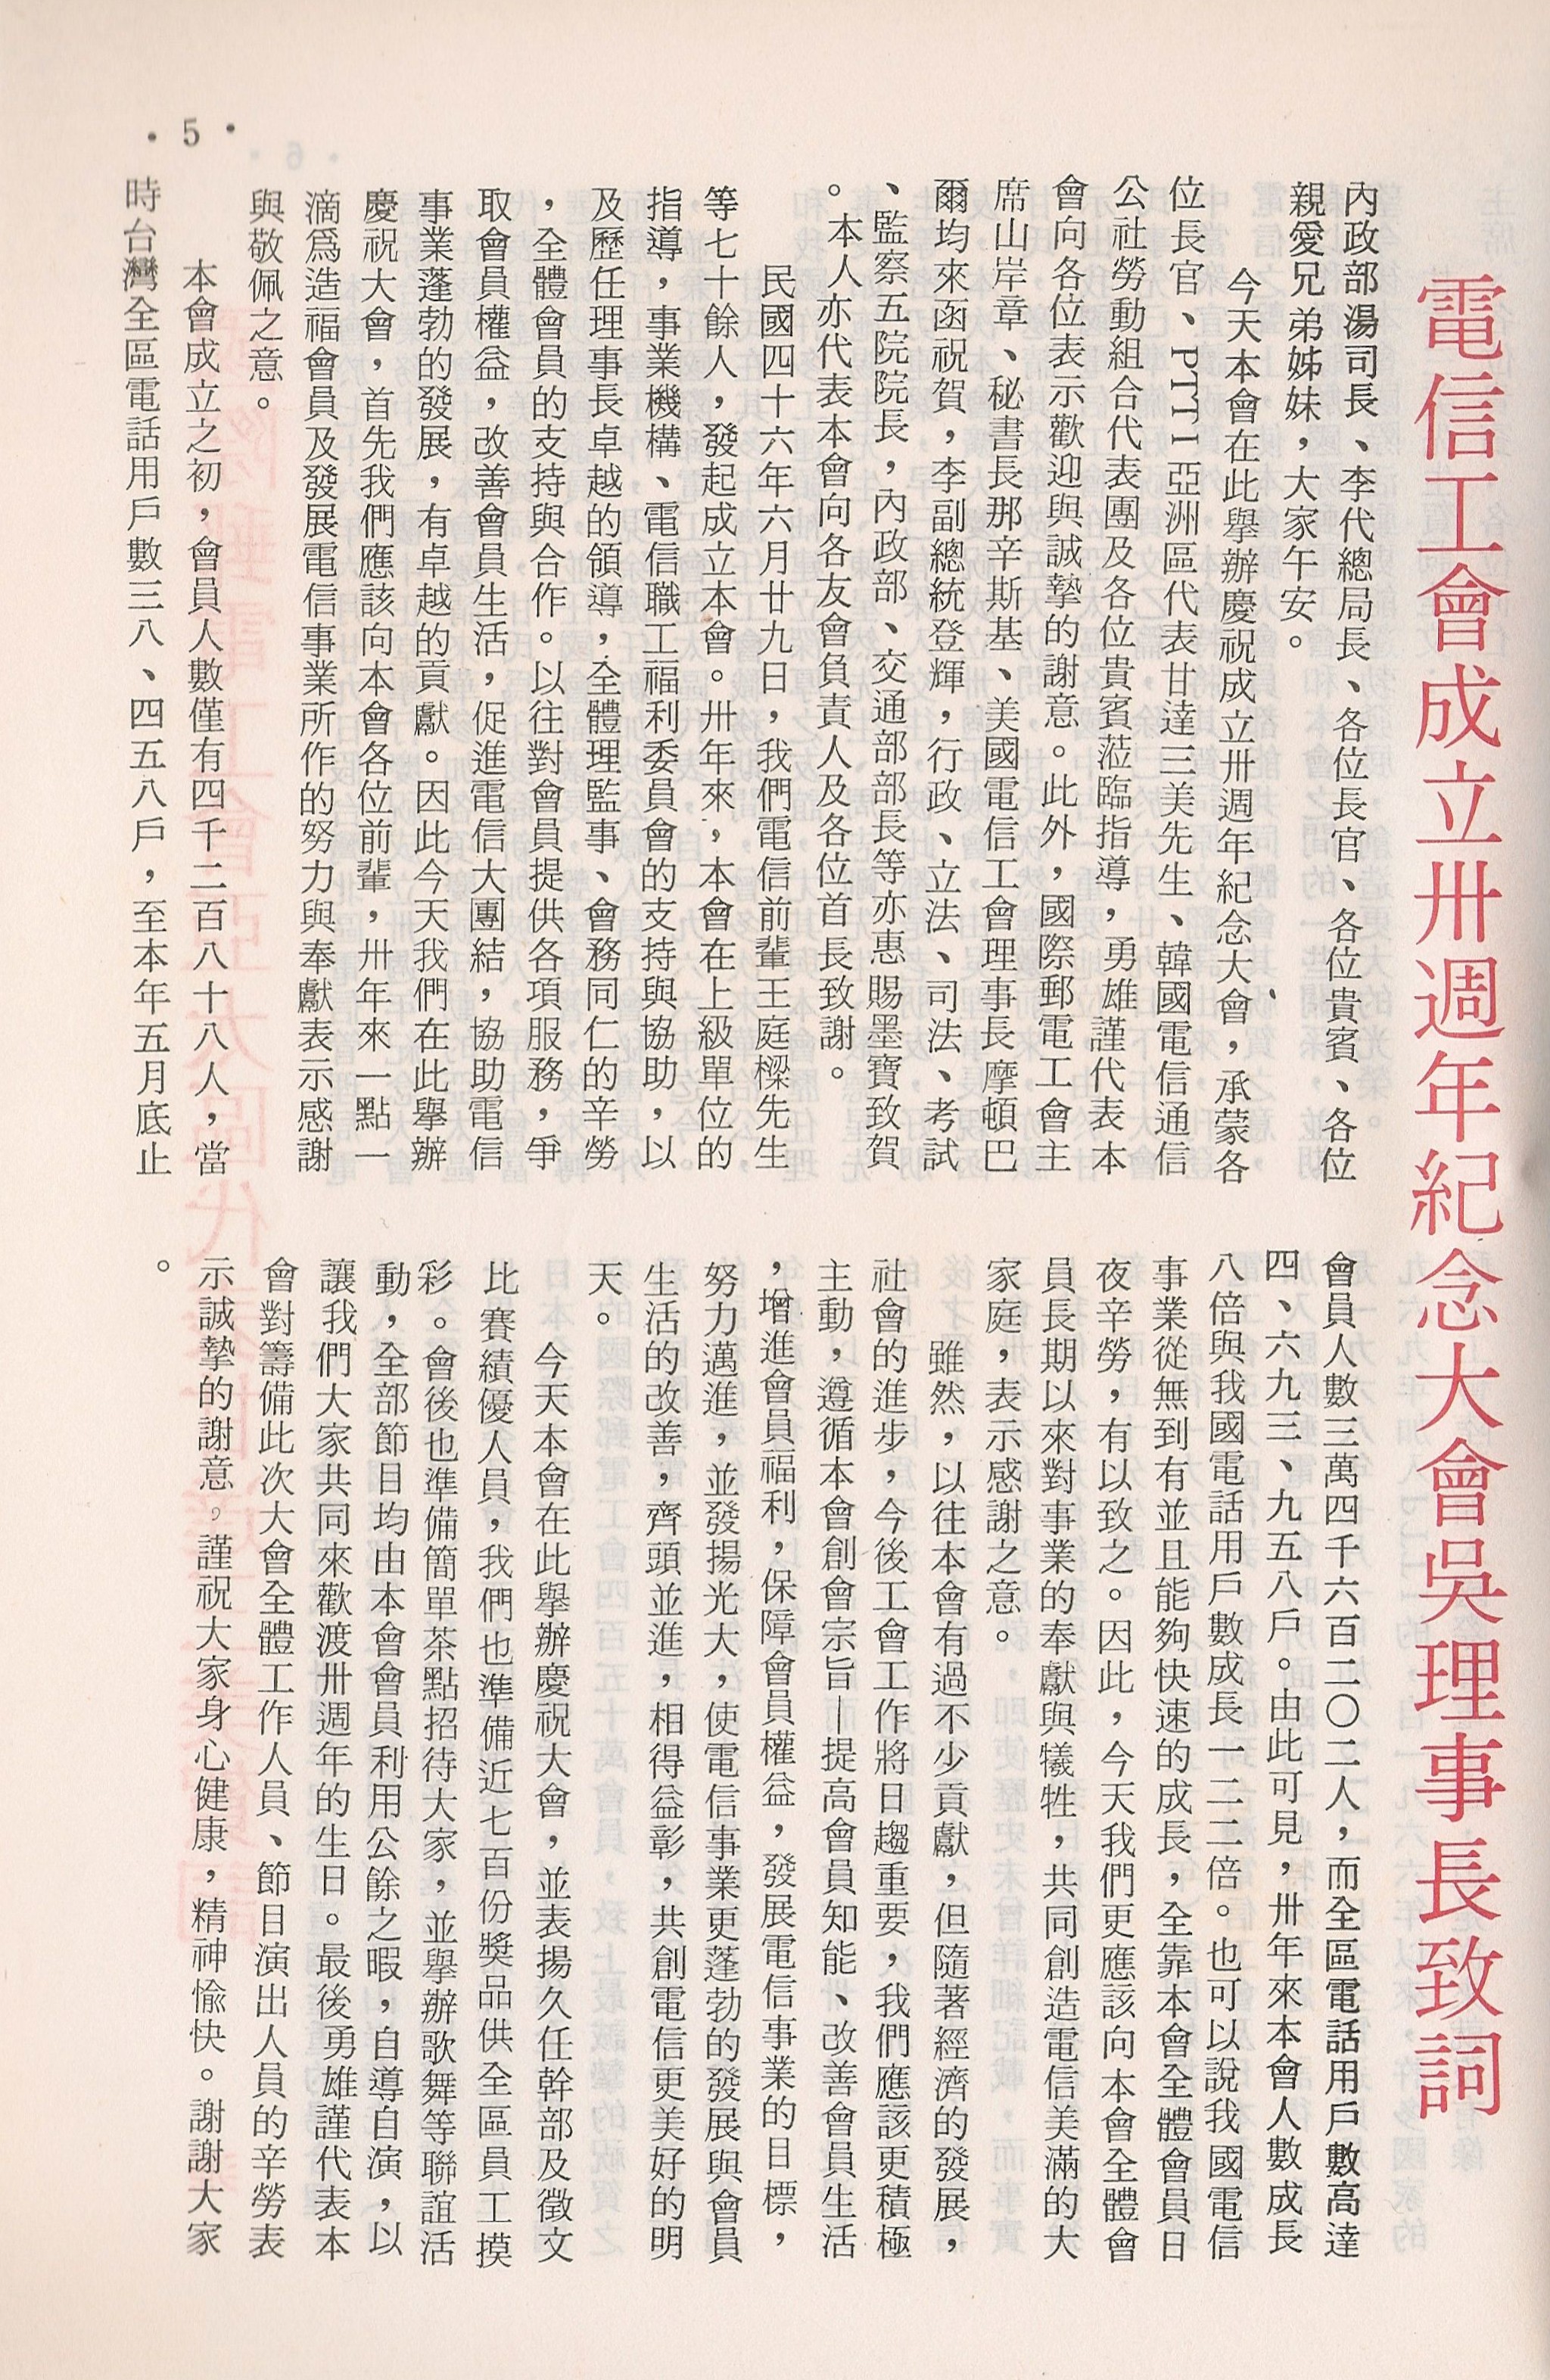 電信工會成立卅週年紀念大會吳理事長致詞
內政部湯司長、李代總局長、各位長官、各位貴賓、各位
親愛兄弟姊妹，大家午安。
今天本會在此舉辦慶祝成立卅週年紀念大會，承蒙各
位長官、PTTI亞洲區代表甘達三美先生、韓國電信通信
公社勞動組合代表團及各位貴賓蒞臨指導，勇雄謹代表本
會向各位表示歡迎與誠摯的謝意。此外，國際郵電工會主
席山岸章、秘書長那辛斯基、美國電信工會理事長摩頓巴
爾均來函祝賀，李副總統登輝，行政、立法、司法、考試
、監察五院院長，內政部、交通部部長等亦惠賜墨寶致賀
。本人亦代表本會向各友會負責人及各位首長致謝。
民國四十六年六月廿九日，我們電信前輩王庭樑先生
等七十餘人，發起成立本會。卅年來，本會在上級單位的
指導，事業機構、電信職工福利委員會的支持與協助，以
及歷任理事長卓越的領導，全體理監事、會務同仁的辛勞
，全體會員的支持與合作。以往對會員提供各項服務，爭
取會員權益，改善會員生活，促進電信大團結，協助電信
事業蓬勃的發展，有卓越的貢獻。因此今天我們在此舉辦
慶祝大會，首先我們應該向本會各位前輩，卅年來一點一
滴爲造福會員及發展電信事業所作的努力與奉獻表示感謝
與敬佩之意。
本會成立之初，會員人數僅有四千二百八十八人，當
時台灣全區電話用戶數三八、四五八戶，至本年五月底止
會員人數三萬四千六百二〇二人，而全區電話用戶數高達
四、六九三、九五八戶。由此可見，卅年來本會人數成長
八倍與我國電話用戶數成長一二二倍。也可以說我國電信
事業從無到有並且能夠快速的成長，全靠本會全體會員日
夜辛勞，有以致之。因此，今天我們更應該向本會全體會
員長期以來對事業的奉獻與犧牲，共同創造電信美滿的大
家庭，表示感謝之意。
雖然，以往本會有過不少貢獻，但隨著經濟的發展，
社會的進步，今後工會工作將日趨重要，我們應該更積極
主動，遵循本會創會宗旨—提高會員知能、改善會員生活
，增進會員福利，保障會員權益，發展電信事業的目標，
努力邁進，並發揚光大，使電信事業更蓬勃的發展與會員
生活的改善，齊頭並進，相得益彰，共創電信更美好的明
天。
今天本會在此舉辦慶祝大會，並表揚久任幹部及徵文
比賽績優人員，我們也準備近七百份獎品供全區員工摸
彩。會後也準備簡單茶點招待大家，並舉辦歌舞等聯誼活
動，全部節目均由本會會員利用公餘之暇，自導自演，以
讓我們大家共同來歡渡卅週年的生日。最後勇雄謹代表本
會對籌備此次大會全體工作人員、節目演出人員的辛勞表
示誠摯的謝意。謹祝大家身心健康，精神愉快。謝謝大家
。
•5•